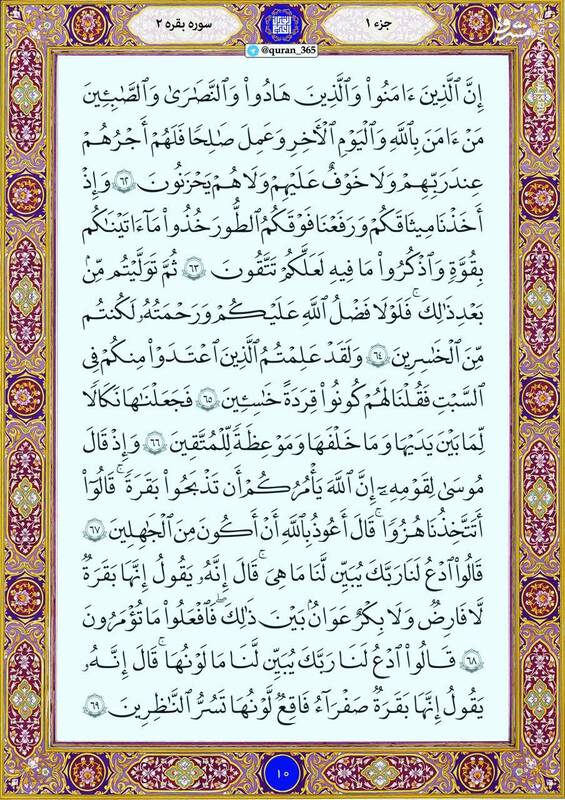 جزء ۱
سوره بقره ۲
@quran_365
إِنَّ ٱلَّذِينَ ءَامَنُوا۟ وَٱلَّذِينَ هَادُوا۟ وَٱلنَّصَٰرَىٰ وَٱلصَّٰبِـِٔينَ
مَنْ ءَامَنَ بِٱللَّهِ وَٱلْيَوْمِ ٱلْأَخِرِ وَعَمِلَ صَٰلِحًا فَلَهُمْ أَجْرُهُمْ
عِندَ رَبِّهِمْ وَلَا خَوْفٌ عَلَيْهِمْ وَلَا هُمْ يَحْزَنُونَ ۶۲ وَإِذْ
أَخَذْنَا مِيثَٰقَكُمْ وَرَفَعْنَا فَوْقَكُمُ ٱلطُّورَ خُذُوا۟ مَآ ءَاتَيْنَٰكُم
بِقُوَّةٍ وَٱذْكُرُوا۟ مَا فِيهِ لَعَلَّكُمْ تَتَّقُونَ ۶۳ ثُمَّ تَوَلَّيْتُم مِّنۢ
بَعْدِ ذَٰلِكَ ۖ فَلَوْلَا فَضْلُ ٱللَّهِ عَلَيْكُمْ وَرَحْمَتُهُۥ لَكُنتُم
مِّنَ ٱلْخَٰسِرِينَ ۶۴ وَلَقَدْ عَلِمْتُمُ ٱلَّذِينَ ٱعْتَدَوْا۟ مِنكُمْ فِى
ٱلسَّبْتِ فَقُلْنَا لَهُمْ كُونُوا۟ قِرَدَةً خَٰسِـِٔينَ ۶۵ فَجَعَلْنَٰهَا نَكَٰلًا
لِّمَا بَيْنَ يَدَيْهَا وَمَا خَلْفَهَا وَمَوْعِظَةً لِّلْمُتَّقِينَ ۶۶ وَإِذْ قَالَ
مُوسَىٰ لِقَوْمِهِۦٓ إِنَّ ٱللَّهَ يَأْمُرُكُمْ أَن تَذْبَحُوا۟ بَقَرَةً ۖ قَالُوٓا۟
أَتَتَّخِذُنَا هُزُوًا ۖ قَالَ أَعُوذُ بِٱللَّهِ أَنْ أَكُونَ مِنَ ٱلْجَٰهِلِينَ ۶۷
قَالُوا۟ ٱدْعُ لَنَا رَبَّكَ يُبَيِّن لَّنَا مَا هِىَ ۚ قَالَ إِنَّهُۥ يَقُولُ إِنَّهَا بَقَرَةٌ
لَّا فَارِضٌ وَلَا بِكْرٌ عَوَانٌۢ بَيْنَ ذَٰلِكَ ۖ فَٱفْعَلُوا۟ مَا تُؤْمَرُونَ
۶۸ قَالُوا۟ ٱدْعُ لَنَا رَبَّكَ يُبَيِّن لَّنَا مَا لَوْنُهَا ۚ قَالَ إِنَّهُۥ
يَقُولُ إِنَّهَا بَقَرَةٌ صَفْرَآءُ فَاقِعٌ لَّوْنُهَا تَسُرُّ ٱلنَّٰظِرِينَ ۶۹
۱۰